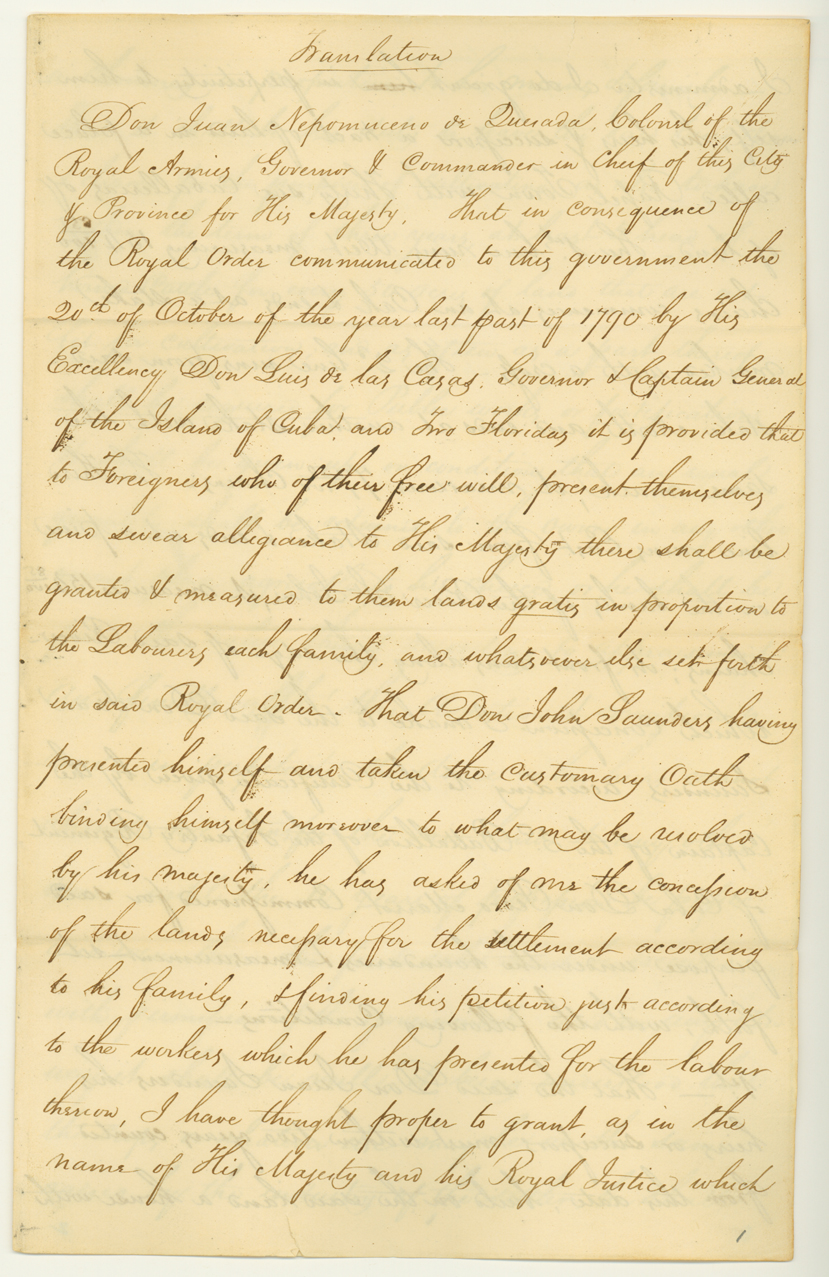 Translation
Don Juan Nepomuceno de Quesada, Colonel of the
Royal Armies, Governor & Commander in Cheif of this City
& Province for His Majesty. That in consequence of
the Royal Order communicated to this government the
20th of October of the year last past of 1790 by His
Excellency Don Luis de las Casas, Governor & Captain General
of the Island of Cuba, and Two Floridas it is provided that
to Foreigners who of their free will, present themselves
and swear allegiance to His Majesty there shall be
granted & measured to them lands gratis in proportion to
the Labourers each family, and whatsoever else set forth
in said Royal Order - That Don John Saunders having
presented himself and taken the customary Oath
binding himself moreover to what may be resolved
by his majesty, he has asked of me the concession
of the lands necessary for the settlement according
to his family, & finding his petition just according
to the workers which he has presented for the labour
thereon, I have thought proper to grant, as in the
name of His Majesty and his Royal Justice which
1